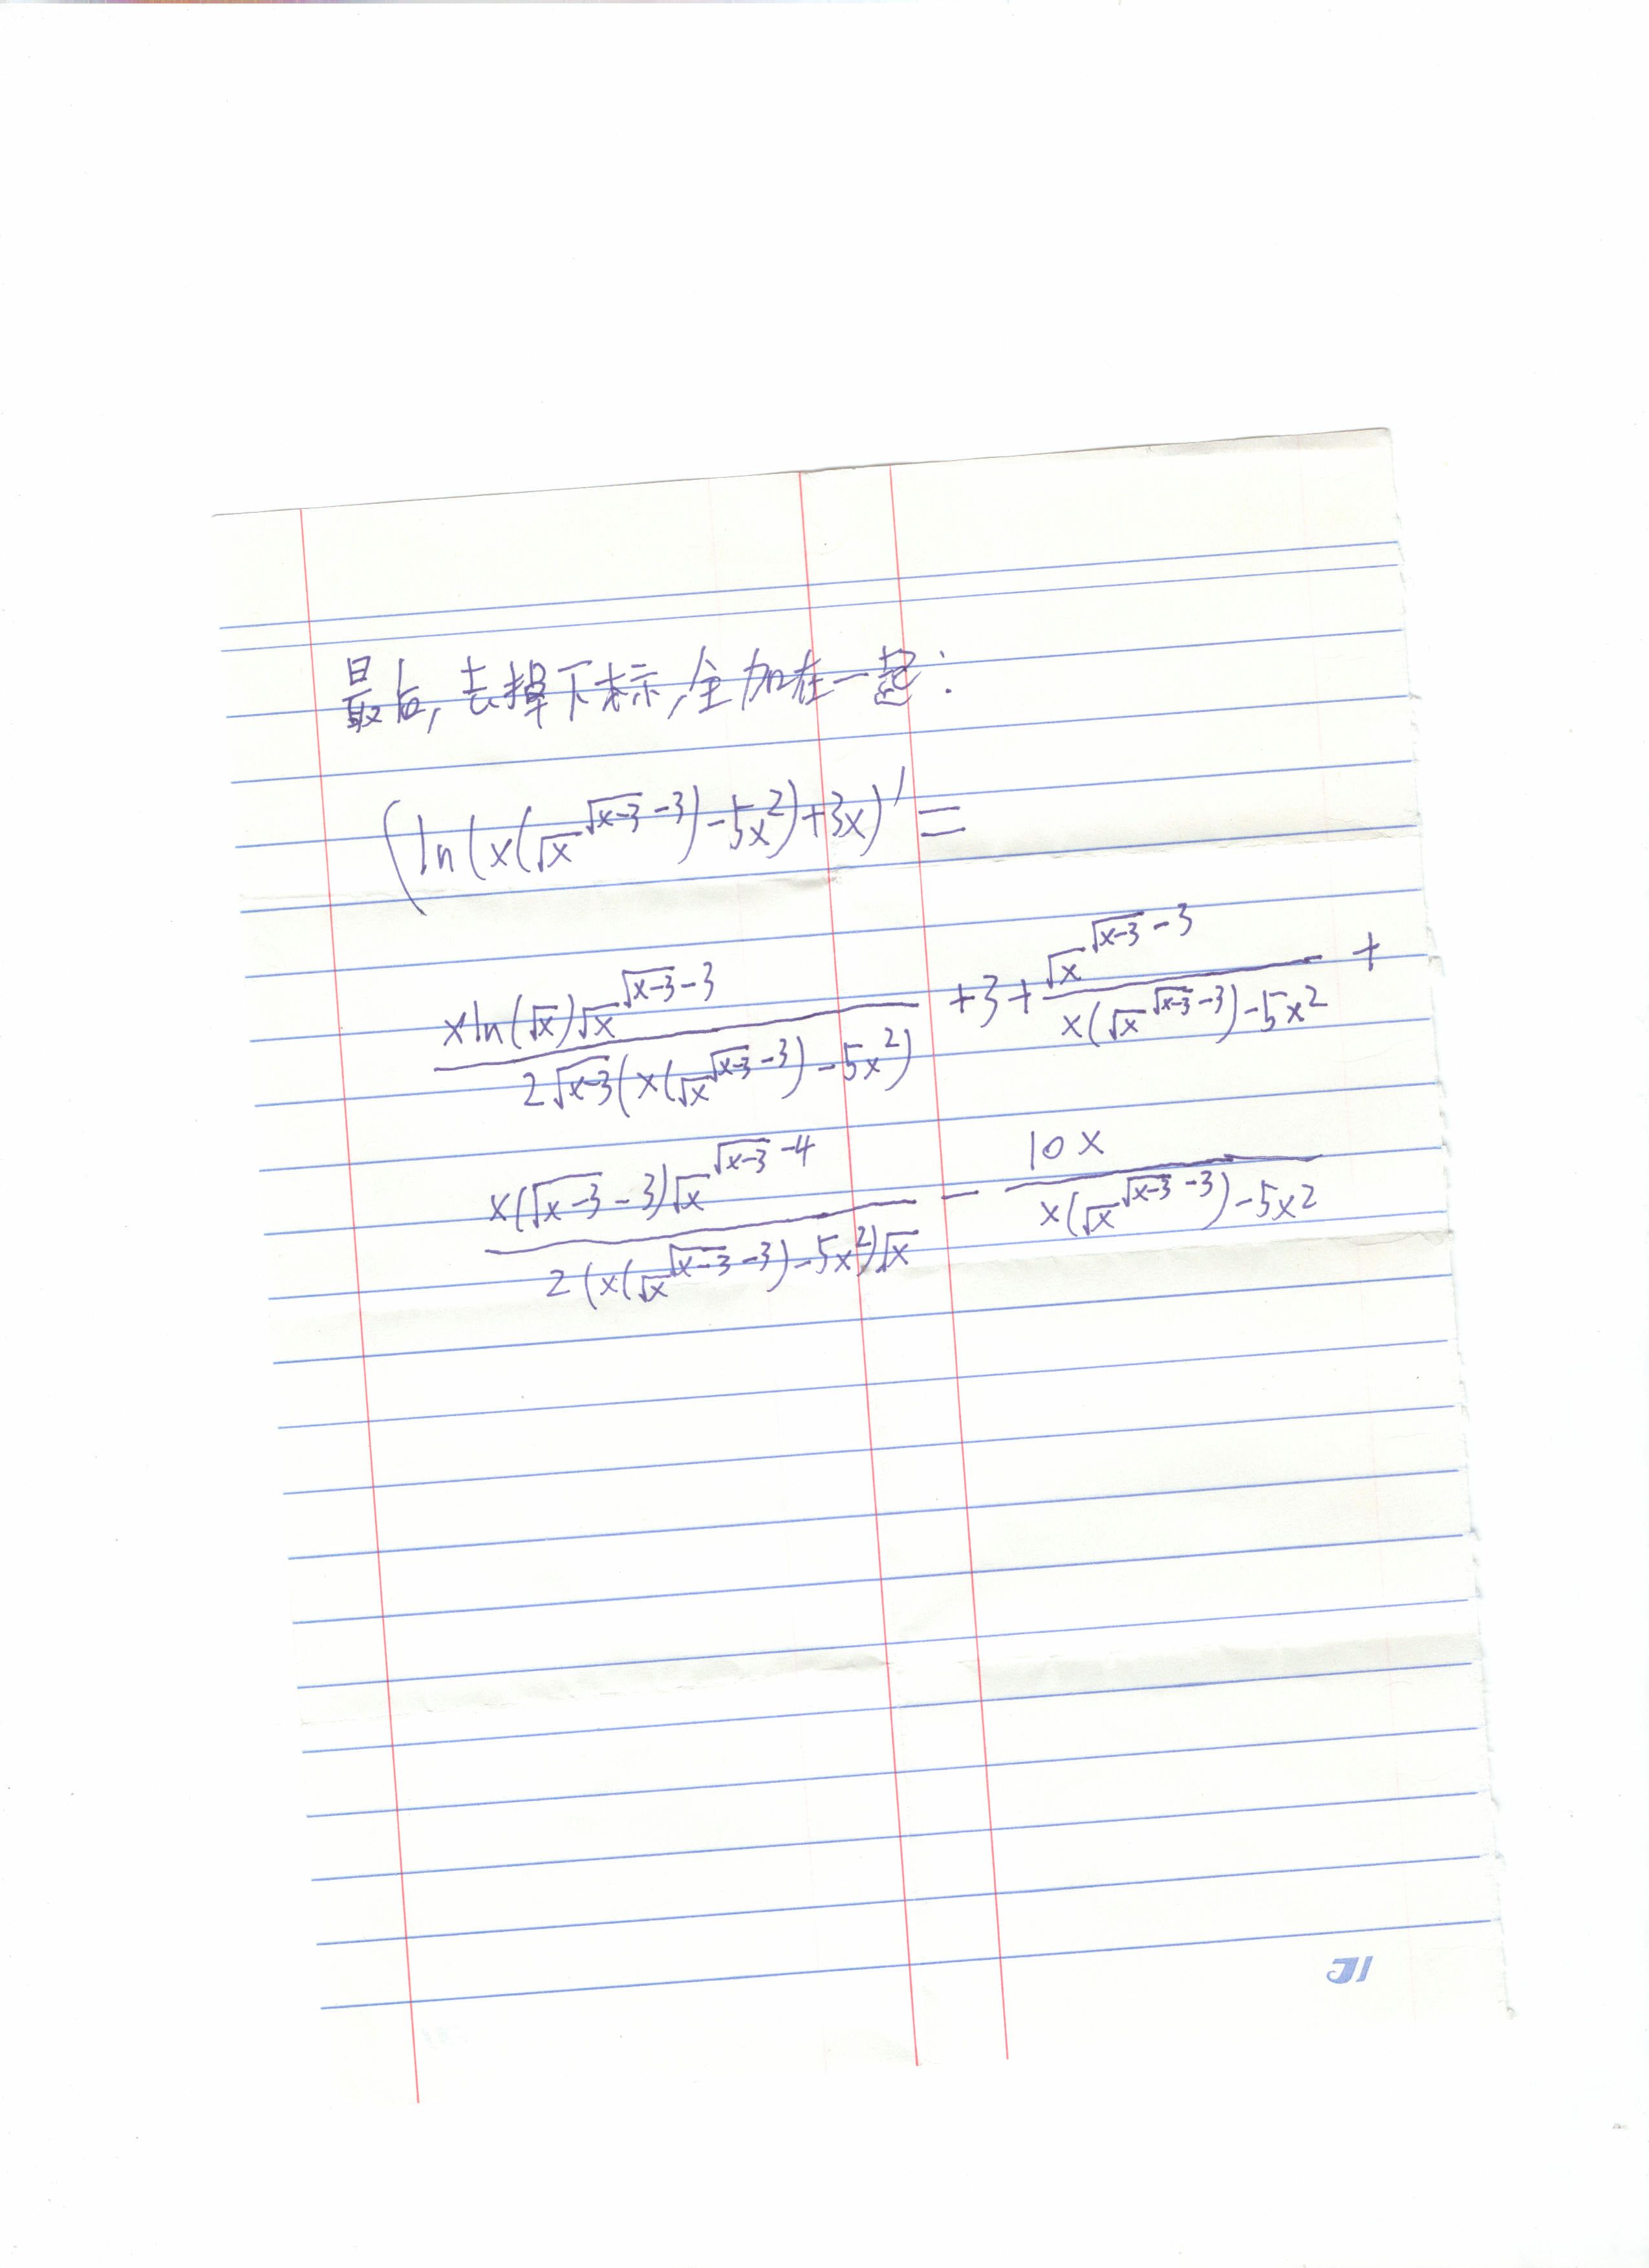 最后,去掉下标,全加在一起:
(ln(x(√x^(√(x-3)-3))-5x²)+3x)′=
xln(√x)√x^(√(x-3)-3)/2√(x-3)(x(√x^(√(x-3)-3))-5x²) +3+ √x^(√(x-3)-3)/x(√x^(√(x-3)-3))-5x² +
x(√(x-3)-3)√x^(√(x-3)-4)/2(x(√x^(√(x-3)-3))-5x²)√x - 10x/x(√x^(√(x-3)-3))-5x²